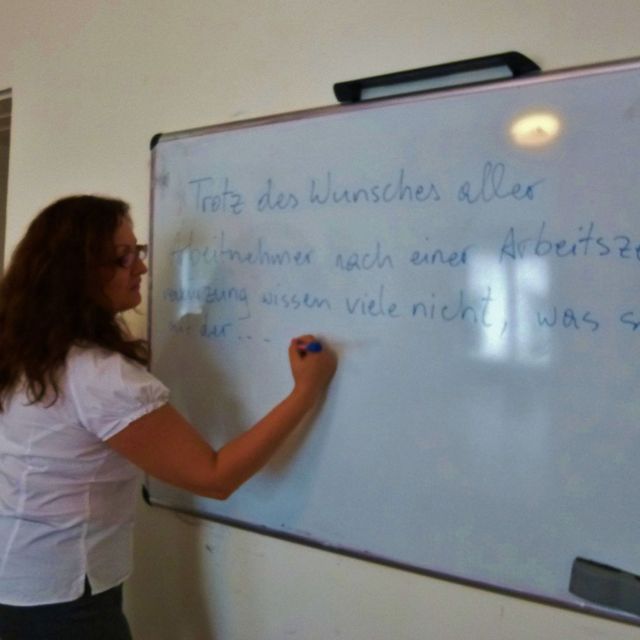 Trotz des Wunsches aller
Arbeitnehmer nach einer Arbeitsze
wissen viele nicht, was s
der...